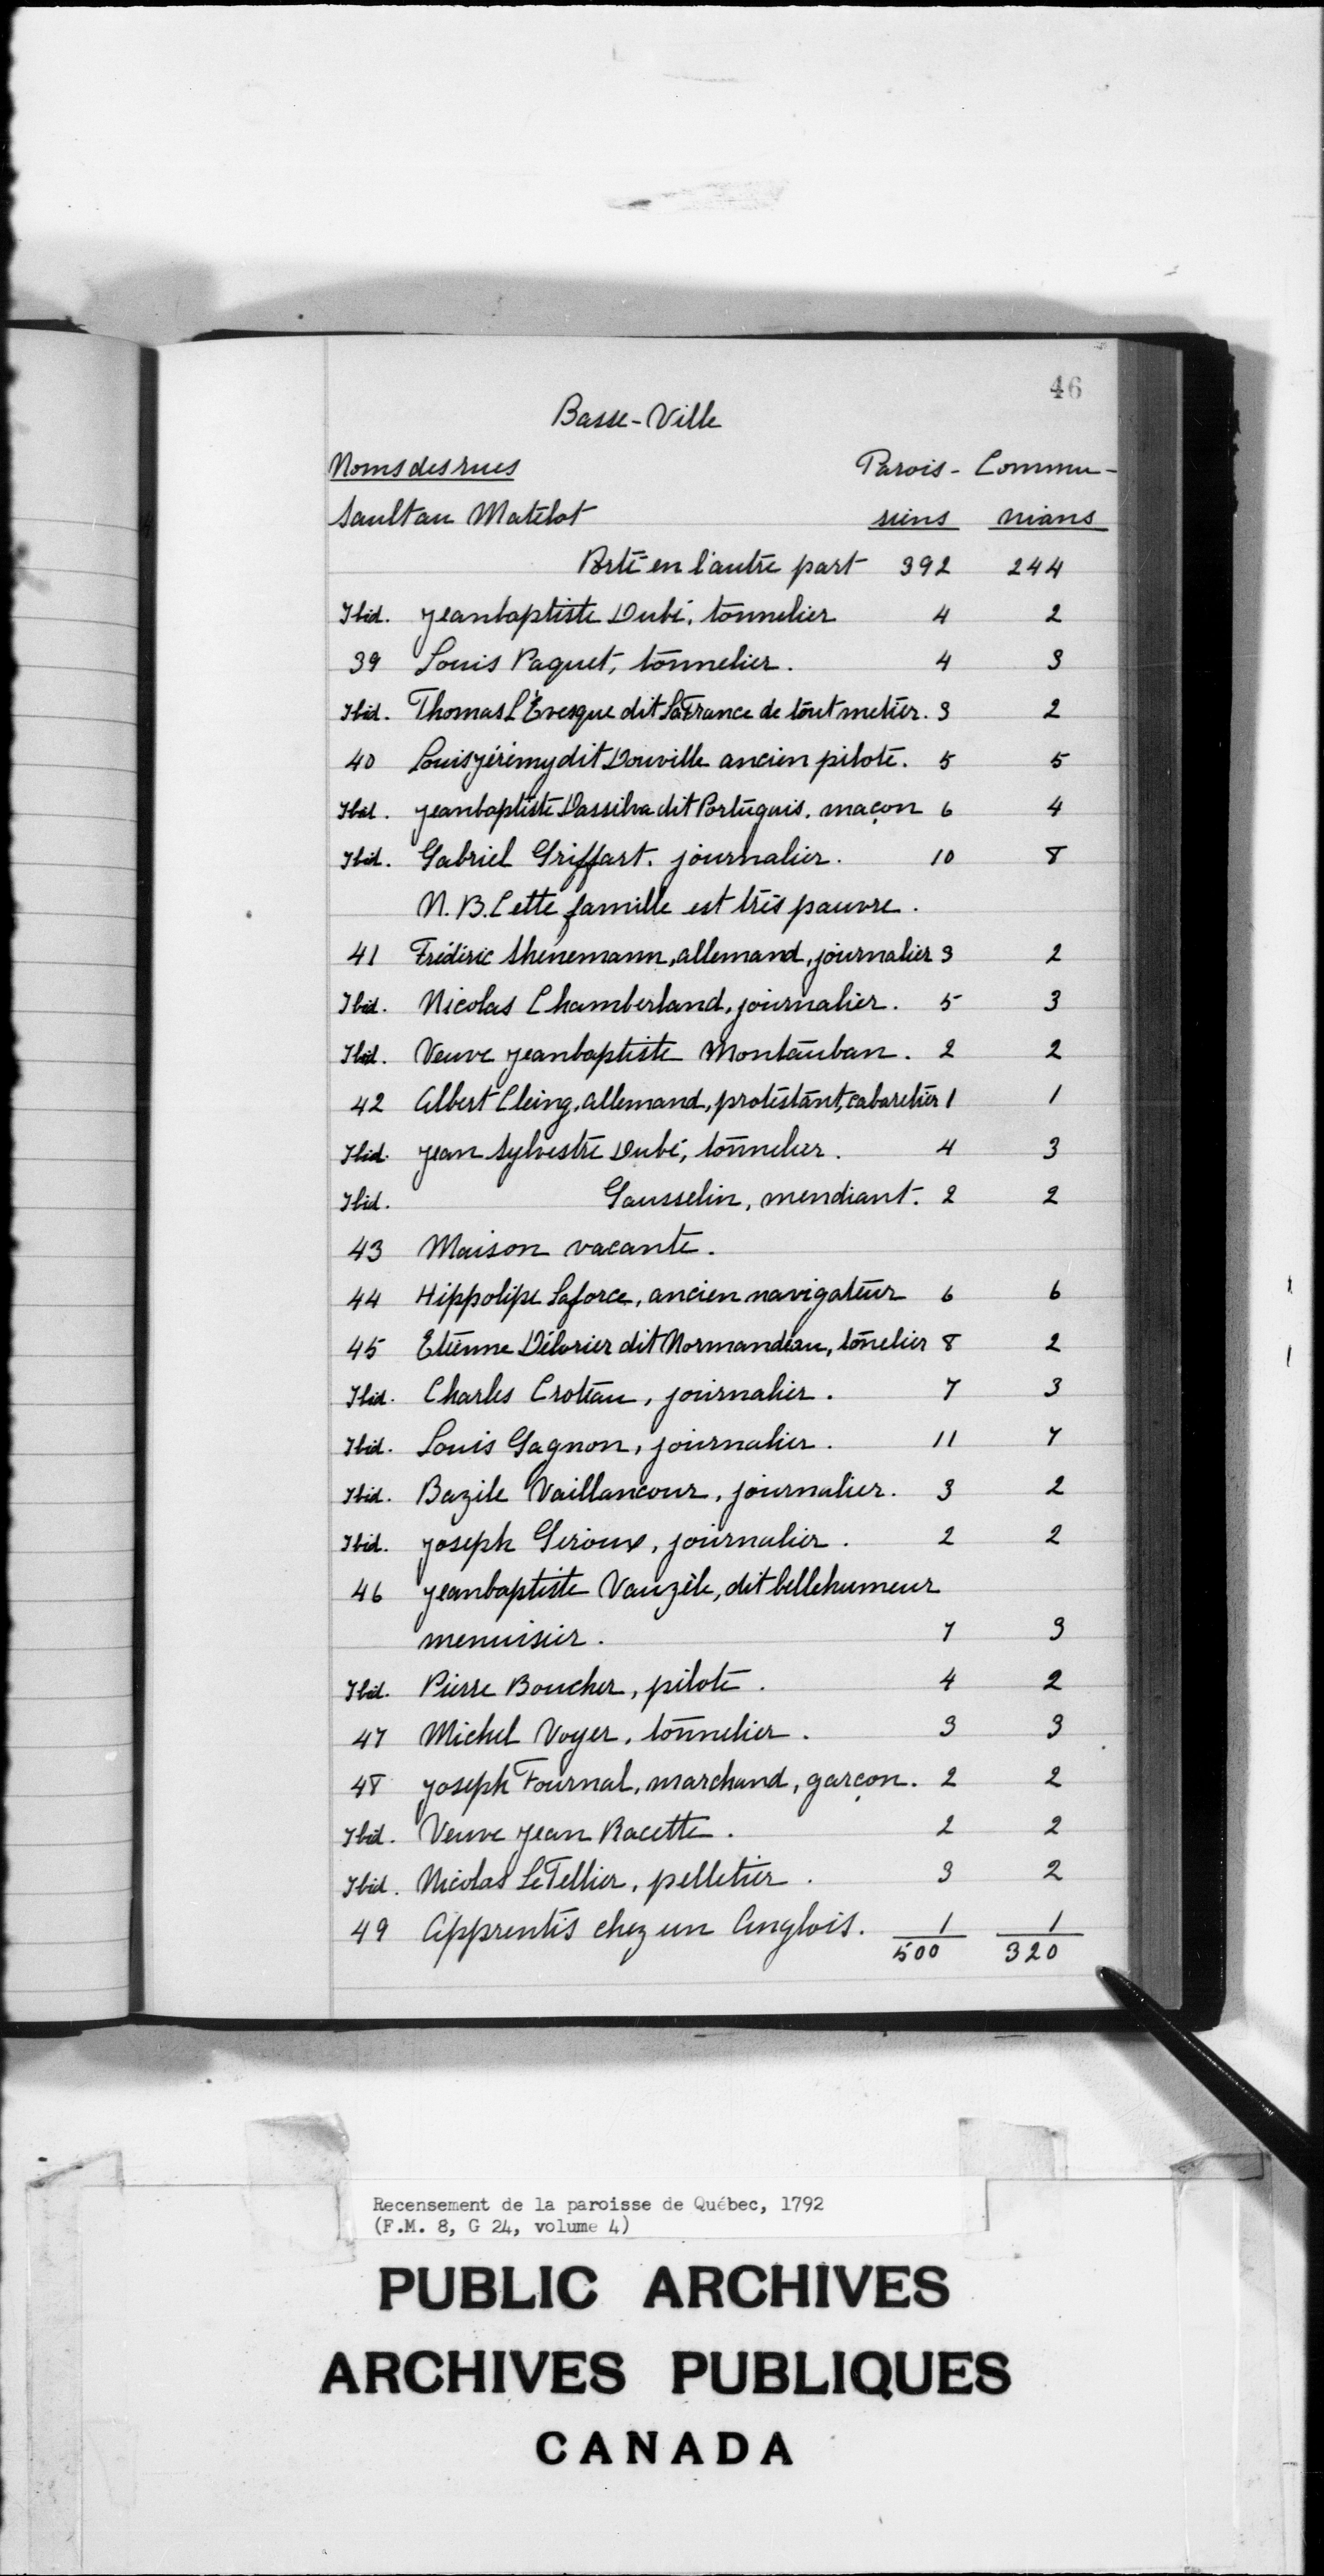 46
Basse-Ville
Noms des rues Parois- Commu-
Sault au Matelot siens nians
Porté en l'autre part 392 244
Ibid. Jeanbaptiste Dubé, tonnelier 4 2
39 Louis Paquet, tonnelier. 4 3
Ibid. Thomas L'Evesque dit LaFrance de tout metier. 3 2
40 Louis Jérémy dit Douville ancien pilote. 5 5
Ibid. Jeanbaptiste Dassilva dit Portugais. maçon 6 4
Ibid. Gabriel Griffart. journalier. 10 8
N.B. Cette famille est très pauvre.
41 Frédéric Shenemann, allemand, journalier 3 2
Ibid. Nicolas Chamberland, journalier. 5 3
Ibid. Veuve Jeanbaptiste Montauban. 2 2
42 Albert Cleing, allemand, protestant, cabaretier 1 1
Ibid. Jean Sylvestre Dubé, tonnelier. 4 3
Ibid. Gausselin, mendiant. 2 2
43 Maison vacante.
44 Hippolipe Laforce, ancien navigateur 6 6
45 Etienne Délorier dit Normandeau, tonelier 8 2
Ibid. Charles Croteau, journalier. 7 3
Ibid. Louis Gagnon, journalier. 11 7
Ibid. Bazile Vaillancour, journalier. 3 2
Ibid. Joseph Geroux, journalier. 2 2
46 Jeanbaptiste Vauzèle, dit bellehumeur
menuisier. 7 3
Ibid. Pierre Boucher, pilote. 4 2
47 Michel Voyer, tonnelier. 3 3
48 Joseph Fournal, marchand, garçon. 2 2
Ibid. Veuve Jean Racette. 2 2
Ibid. Nicolas LeTellier, pelletier. 3 2
49 Apprentis chez un Anglois. 1 1
500 320
Recensement de la paroisse de Québec, 1792
(F.M. 8, G 24, volume 4)
PUBLIC ARCHIVES
ARCHIVES PUBLIQUES
CANADA